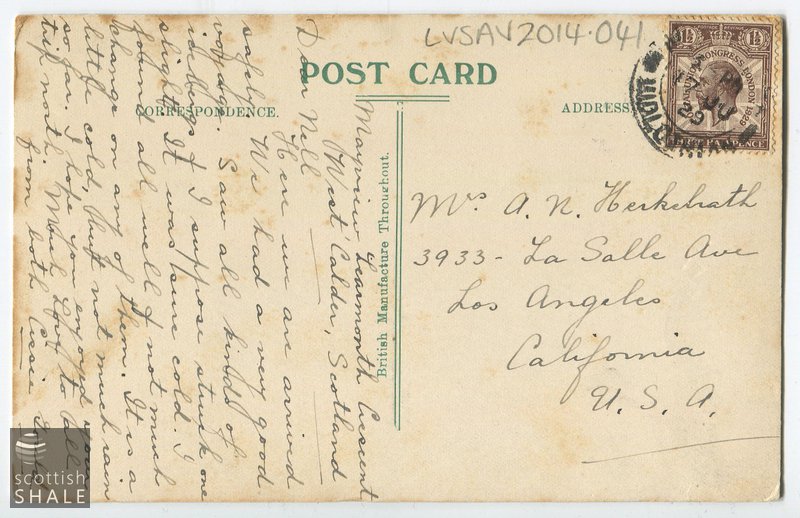 LVSAV2014.041
POST CARD
CORRESPONDENCE.
ADDRESS
British Manufacture Throughout.
1½
1½
POSTAL UNION CONGRESS LONDON 1929
PENCE
MIDLOTHIAN
29
Mayview Learmonth Crescent
West Calder, Scotland
Dear Nell
Here we are arrived
safely. We had a very good
voyage. Saw all kinds of
icebergs & I suppose struck one
slight. It was sure cold. I
found all well & not much
change on any of them. It is a
little cold, but not much rain
so far. I hope you enjoyed your
trip north. Much Love to all
from both Cissie
Mrs A. N. Herkelrath
3933 - La Salle Ave
Los Angeles
California
U. S. A.
scottish
SHALE